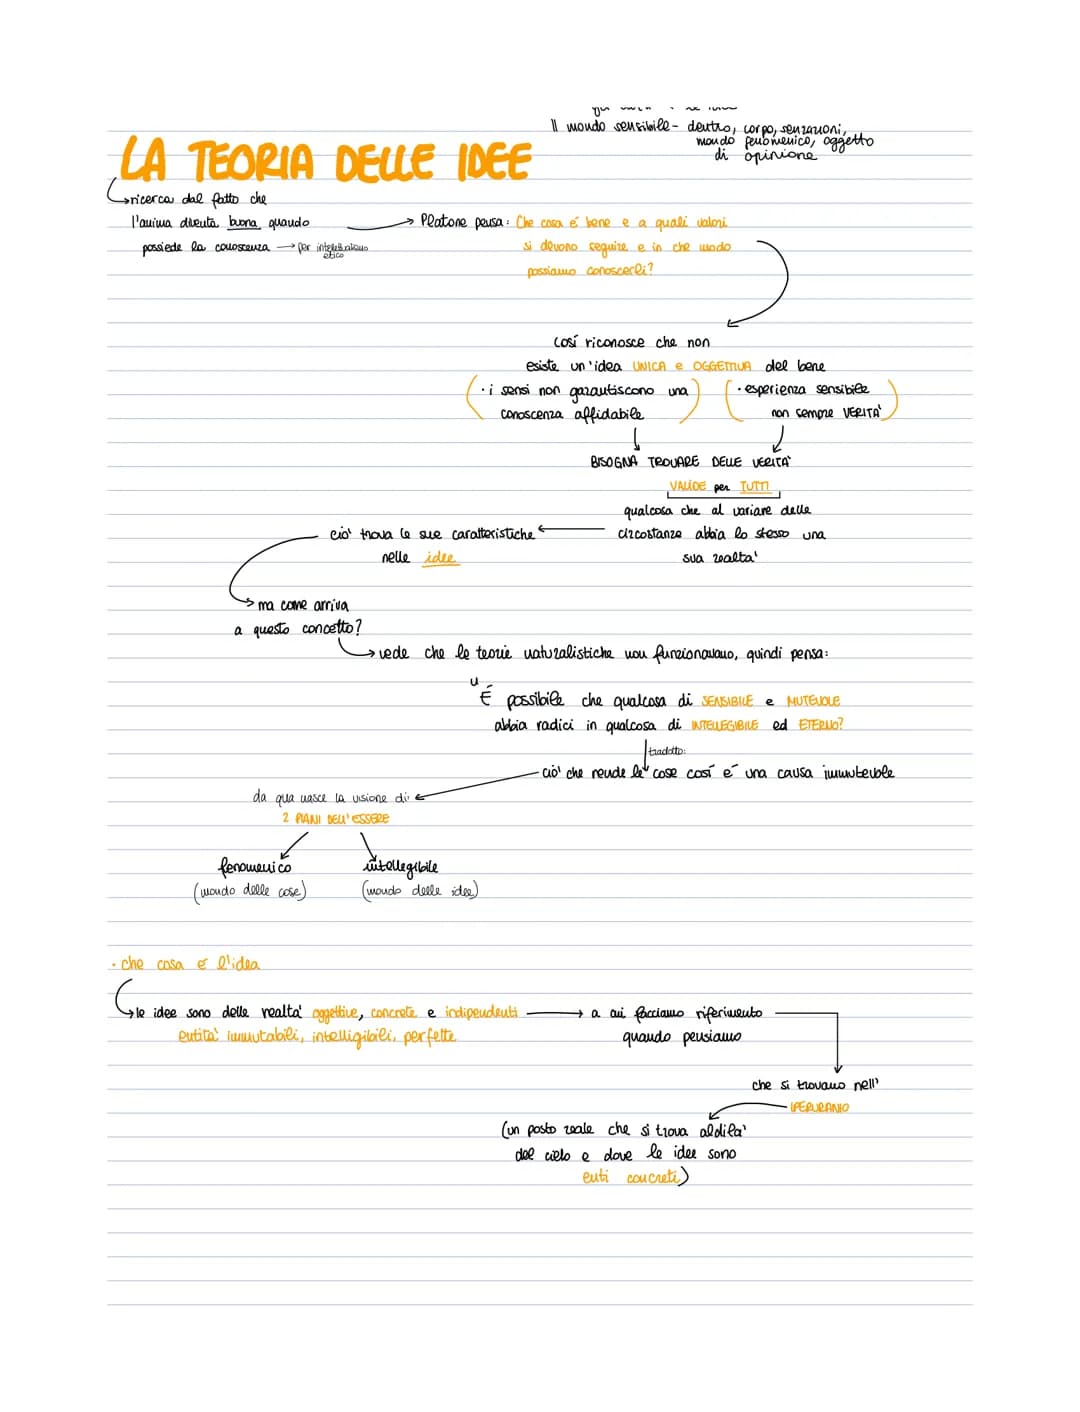 Il mondo sensibile- dentro, corpo, sensazioni,
mondo fenomenico, oggetto
di opinione
LA TEORIA DELLE IDEE
ricerca dal fatto che
l'anima diventa buona quando
possiede la conoscenza → per intelettualismo
etico
→ Platone pensa: Che cosa é bene e a quali valori
si devono seguire e in che modo
possiamo conoscerli?
Cosí riconosce che non
esiste un'idea UNICA e OGGETTIVA del bene
(· i sensi non garantiscono una
conoscenza affidabile)
(· esperienza sensibile
non sempre VERITA')
BISOGNA TROVARE DELLE VERITA'
VALIDE per TUTTI
qualcosa che al variare delle
circostanze abbia lo stesso una
sua realta'
cio' trova le sue caratteristiche
nelle idee
ma come arriva
a questo concetto?
vede che le teorie naturalistiche non funzionavano, quindi pensa:
" É possibile che qualcosa di SENSIBILE e MUTEVOLE
abbia radici in qualcosa di INTELLEGIBILE ed ETERNO?
tradotto:
ciò' che rende le cose cosí é una causa immutevole
da qua nasce la visione di:
2 PIANI DELL'ESSERE
fenomenico
(mondo delle cose)
intellegibile
(mondo delle idee)
· che cosa é l'idea
le idee sono delle realta' oggettive, concrete e indipendenti → a cui facciamo riferimento
entita' immutabili, intelligibili, perfette
quando pensiamo
che si trovano nell'
IPERURANIO
(un posto reale che si trova aldila'
del cielo e dove le idee sono
enti concreti)